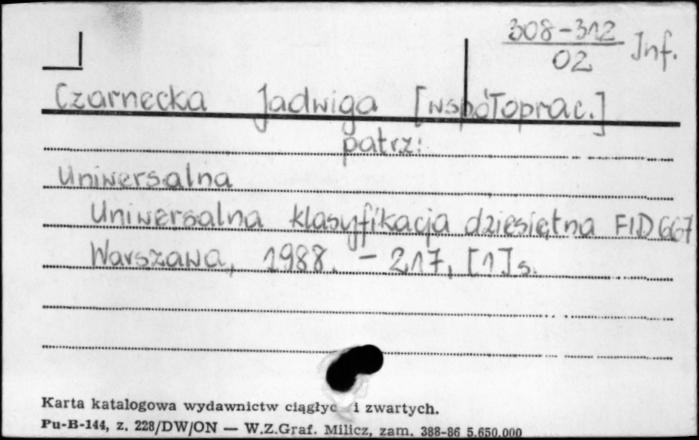 308-312
02 Inf.
Czarnecka Jadwiga [współoprac.]
patrz:
Uniwersalna
Uniwersalna klasyfikacja dziesiętna FID 667
Warszawa, 1988. - 217, [1] s.
Karta katalogowa wydawnictw ciągłyc i zwartych.
Pu-B-144, z. 228/DW/ON — W.Z.Graf. Milicz, zam. 388-86 5.650.000